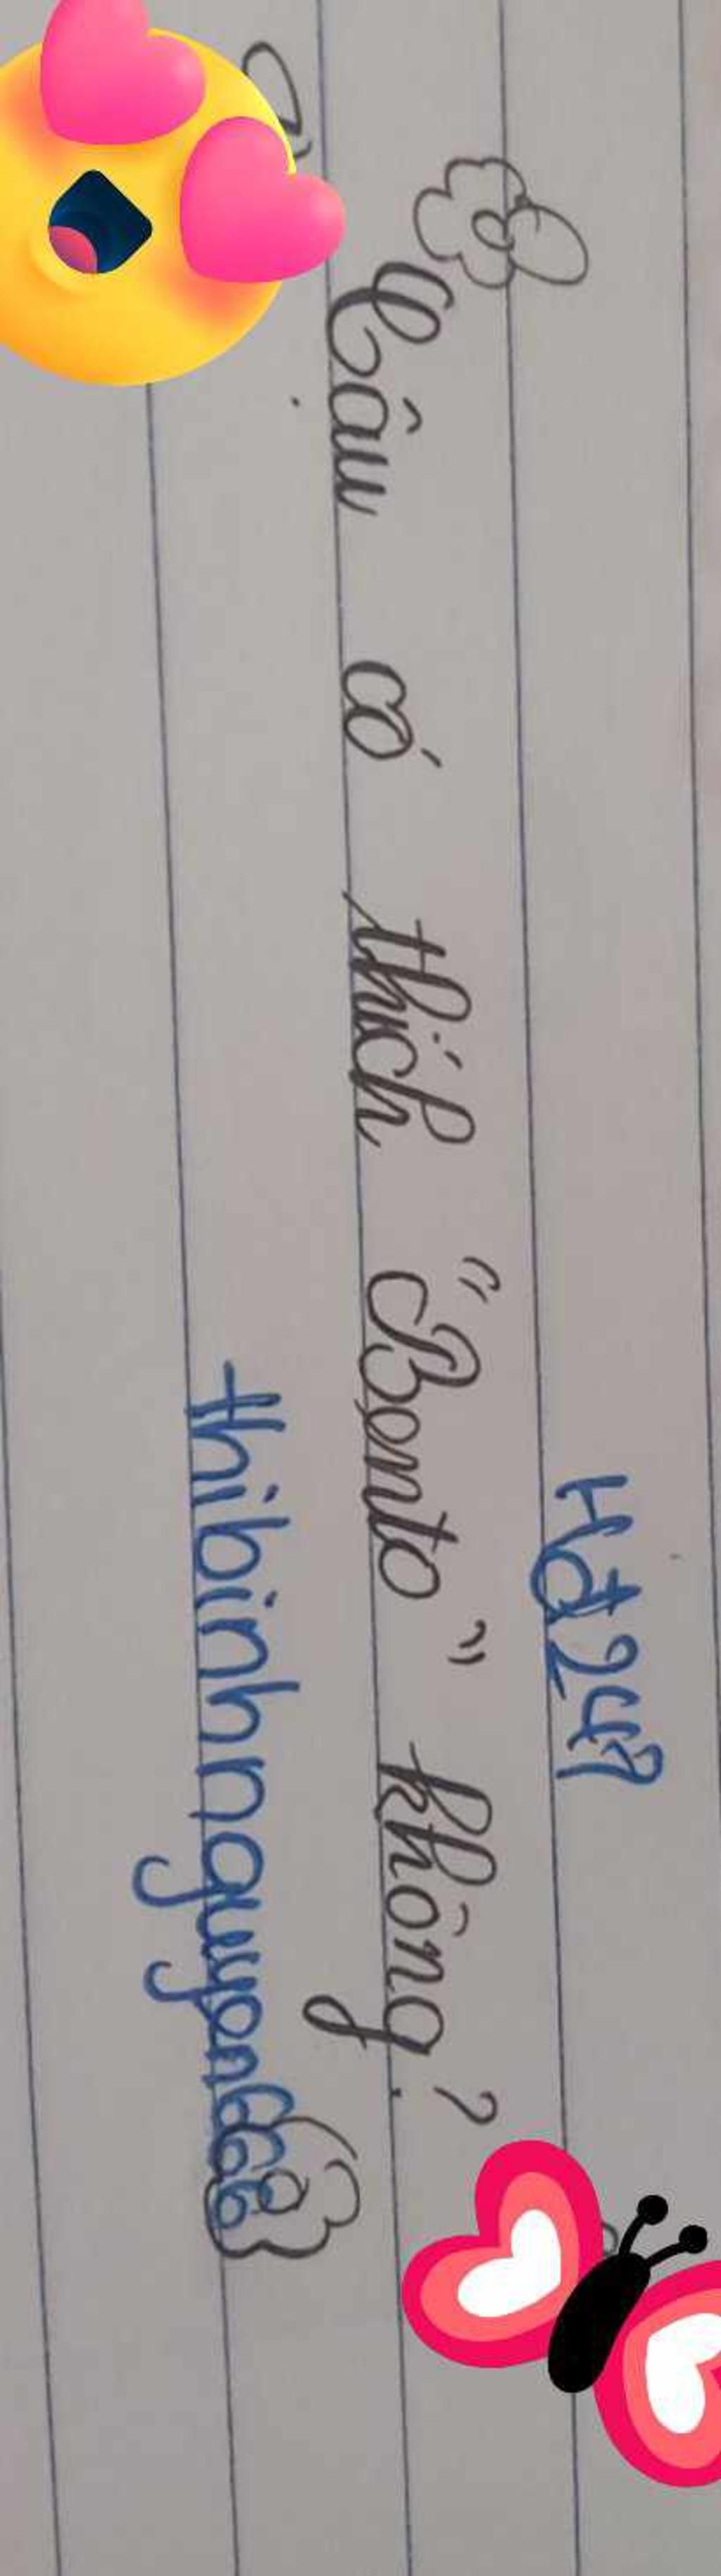 Hd247
Câu có thích "Bento" không?
thibinhnguyen666